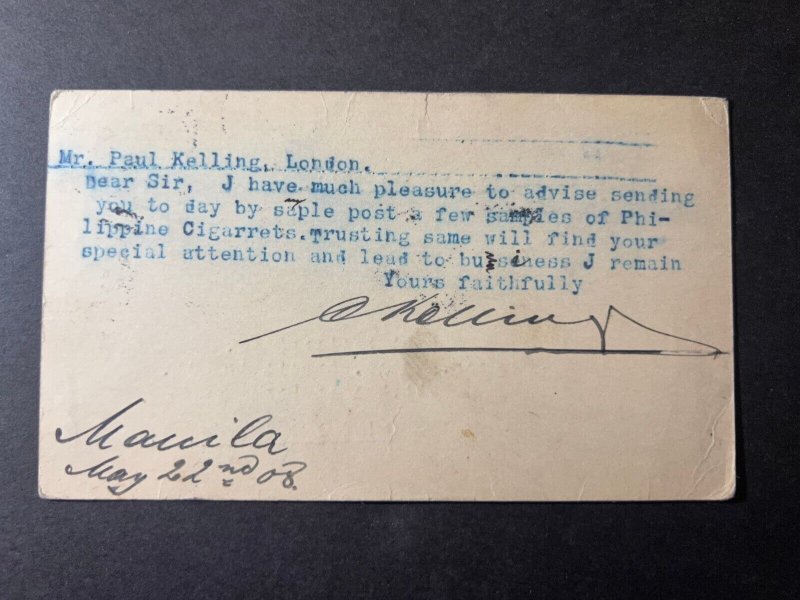 Mr. Paul Kelling, London.
Dear Sir, J have much pleasure to advise sending
you to day by saple post a few samples of Phi-
lippine Cigarrets.Trusting same will find your
special attention and lead to business J remain
Yours faithfully
Kelling
Manila
May 22nd 08.